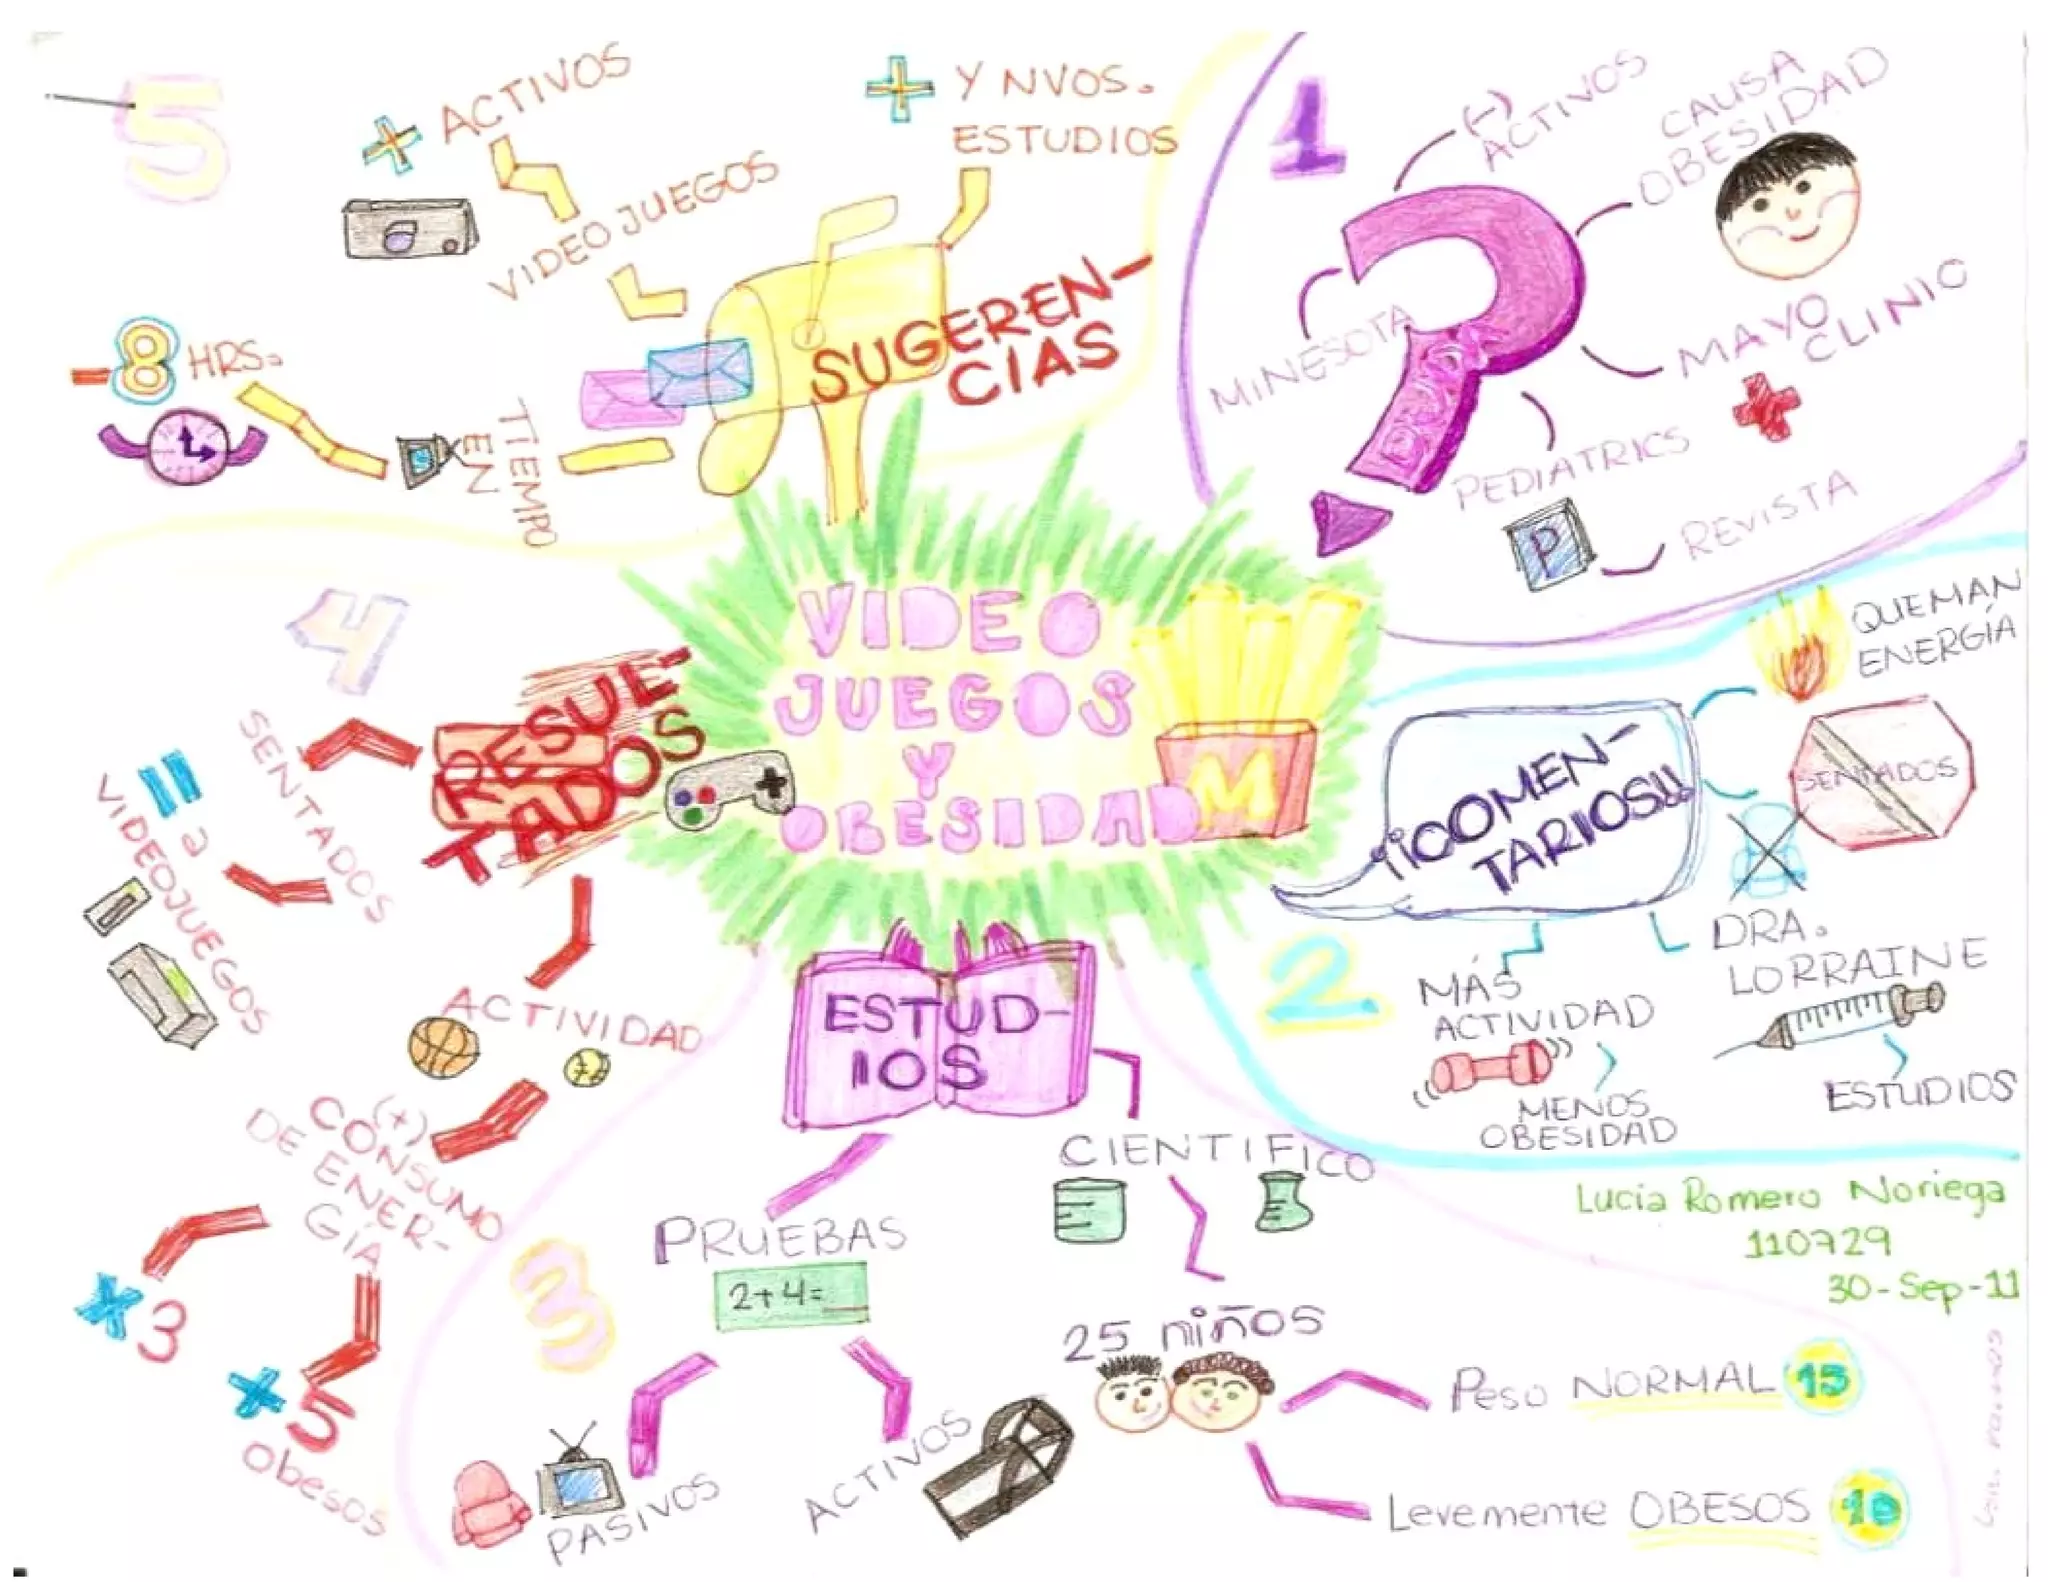 VIDEO
JUEGOS
Y
OBESIDAD
M
1
(-)
ACTIVOS
CAUSA
OBESIDAD
MINESOTA
MAYO
CLINIC
PEDIATRICS
P
REVISTA
2
¡¡COMEN-
TARIOS!!
QUEMAN
ENERGÍA
SENTADOS
DRA.
LORRAINE
ESTUDIOS
MÁS
ACTIVIDAD
MENOS
OBESIDAD
3
ESTUD-
IOS
CIENTIFICO
25 niños
Peso NORMAL 15
Levemente OBESOS 10
PRUEBAS
2+4=
PASIVOS
ACTIVOS
4
RESUL-
TADOS
SENTADOS
= a
VIDEOJUEGOS
ACTIVIDAD
(+)
CONSUMO
DE ENER-
GÍA
*3
*5
obesos
5
SUGEREN-
CIAS
+ Y NVOS.
ESTUDIOS
VIDEOJUEGOS
+ ACTIVOS
TIEMPO
EN
-8 HRS.
Lucía Romero Noriega
110729
30-Sep-11